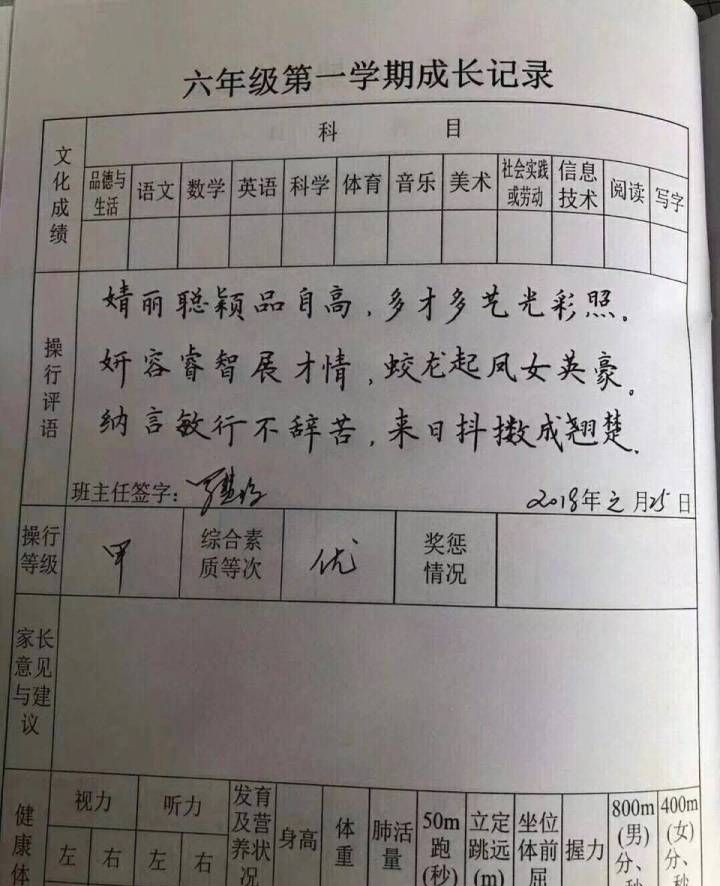 六年级第一学期成长记录
文化成绩
科 目
品德与生活 语文 数学 英语 科学 体育 音乐 美术 社会实践或劳动 信息技术 阅读 写字
操行评语
婧丽聪颖品自高，多才多艺光彩照。
妍容睿智展才情，蛟龙起凤女英豪。
纳言敏行不辞苦，来日抖擞成翘楚。
班主任签字： 2018年 月25日
操行等级 甲 综合素质等次 优 奖惩情况
家长意见与建议
健康体
视力 听力 发育及营养状况 身高 体重 肺活量 50m跑(秒) 立定跳远(m) 坐位体前屈 握力 800m(男)分、秒 400m(女)分、秒
左 右 左 右